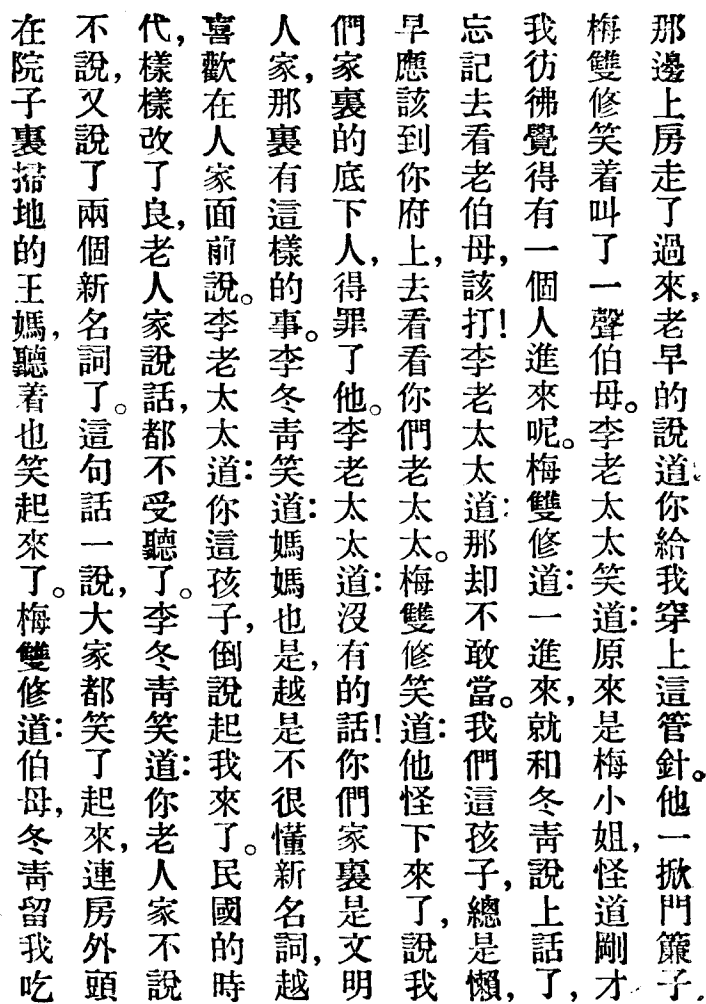 那邊上房走了過來，老早的說道：你給我穿上這管針。他一掀門簾子，
梅雙修笑着叫了一聲伯母。李老太太笑道：原來是梅小姐，怪道剛才
我彷彿覺得有一個人進來呢。梅雙修道：一進來，就和冬青說上話了，
忘記去看老伯母，該打！李老太太道：那却不敢當。我們這孩子，總是懶，
早應該到你府上，去看看你們老太太。梅雙修笑道：他怪下來了，說我
們家裏的底下人，得罪了他。李老太太道：沒有的話！你們家裏是文明
人家，那裏有這樣的事。李冬青笑道：媽媽也是，越是不很懂新名詞，越
喜歡在人家面前說。李老太太道：你這孩子，倒說起我來了。民國的時
代，樣樣改了良，老人家說話，都不受聽了。李冬青笑道：你老人家不說
不說，又說了兩個新名詞了。這句話一說，大家都笑了起來，連房外頭
在院子裏掃地的王媽，聽着也笑起來了。梅雙修道：伯母，冬青留我吃